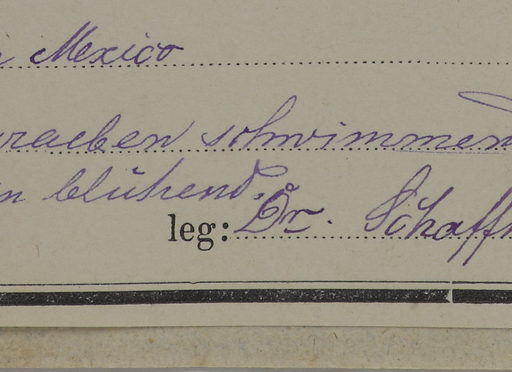 Mexico
raeben schwimmend
n blühend.
leg: Dr. Schaffn